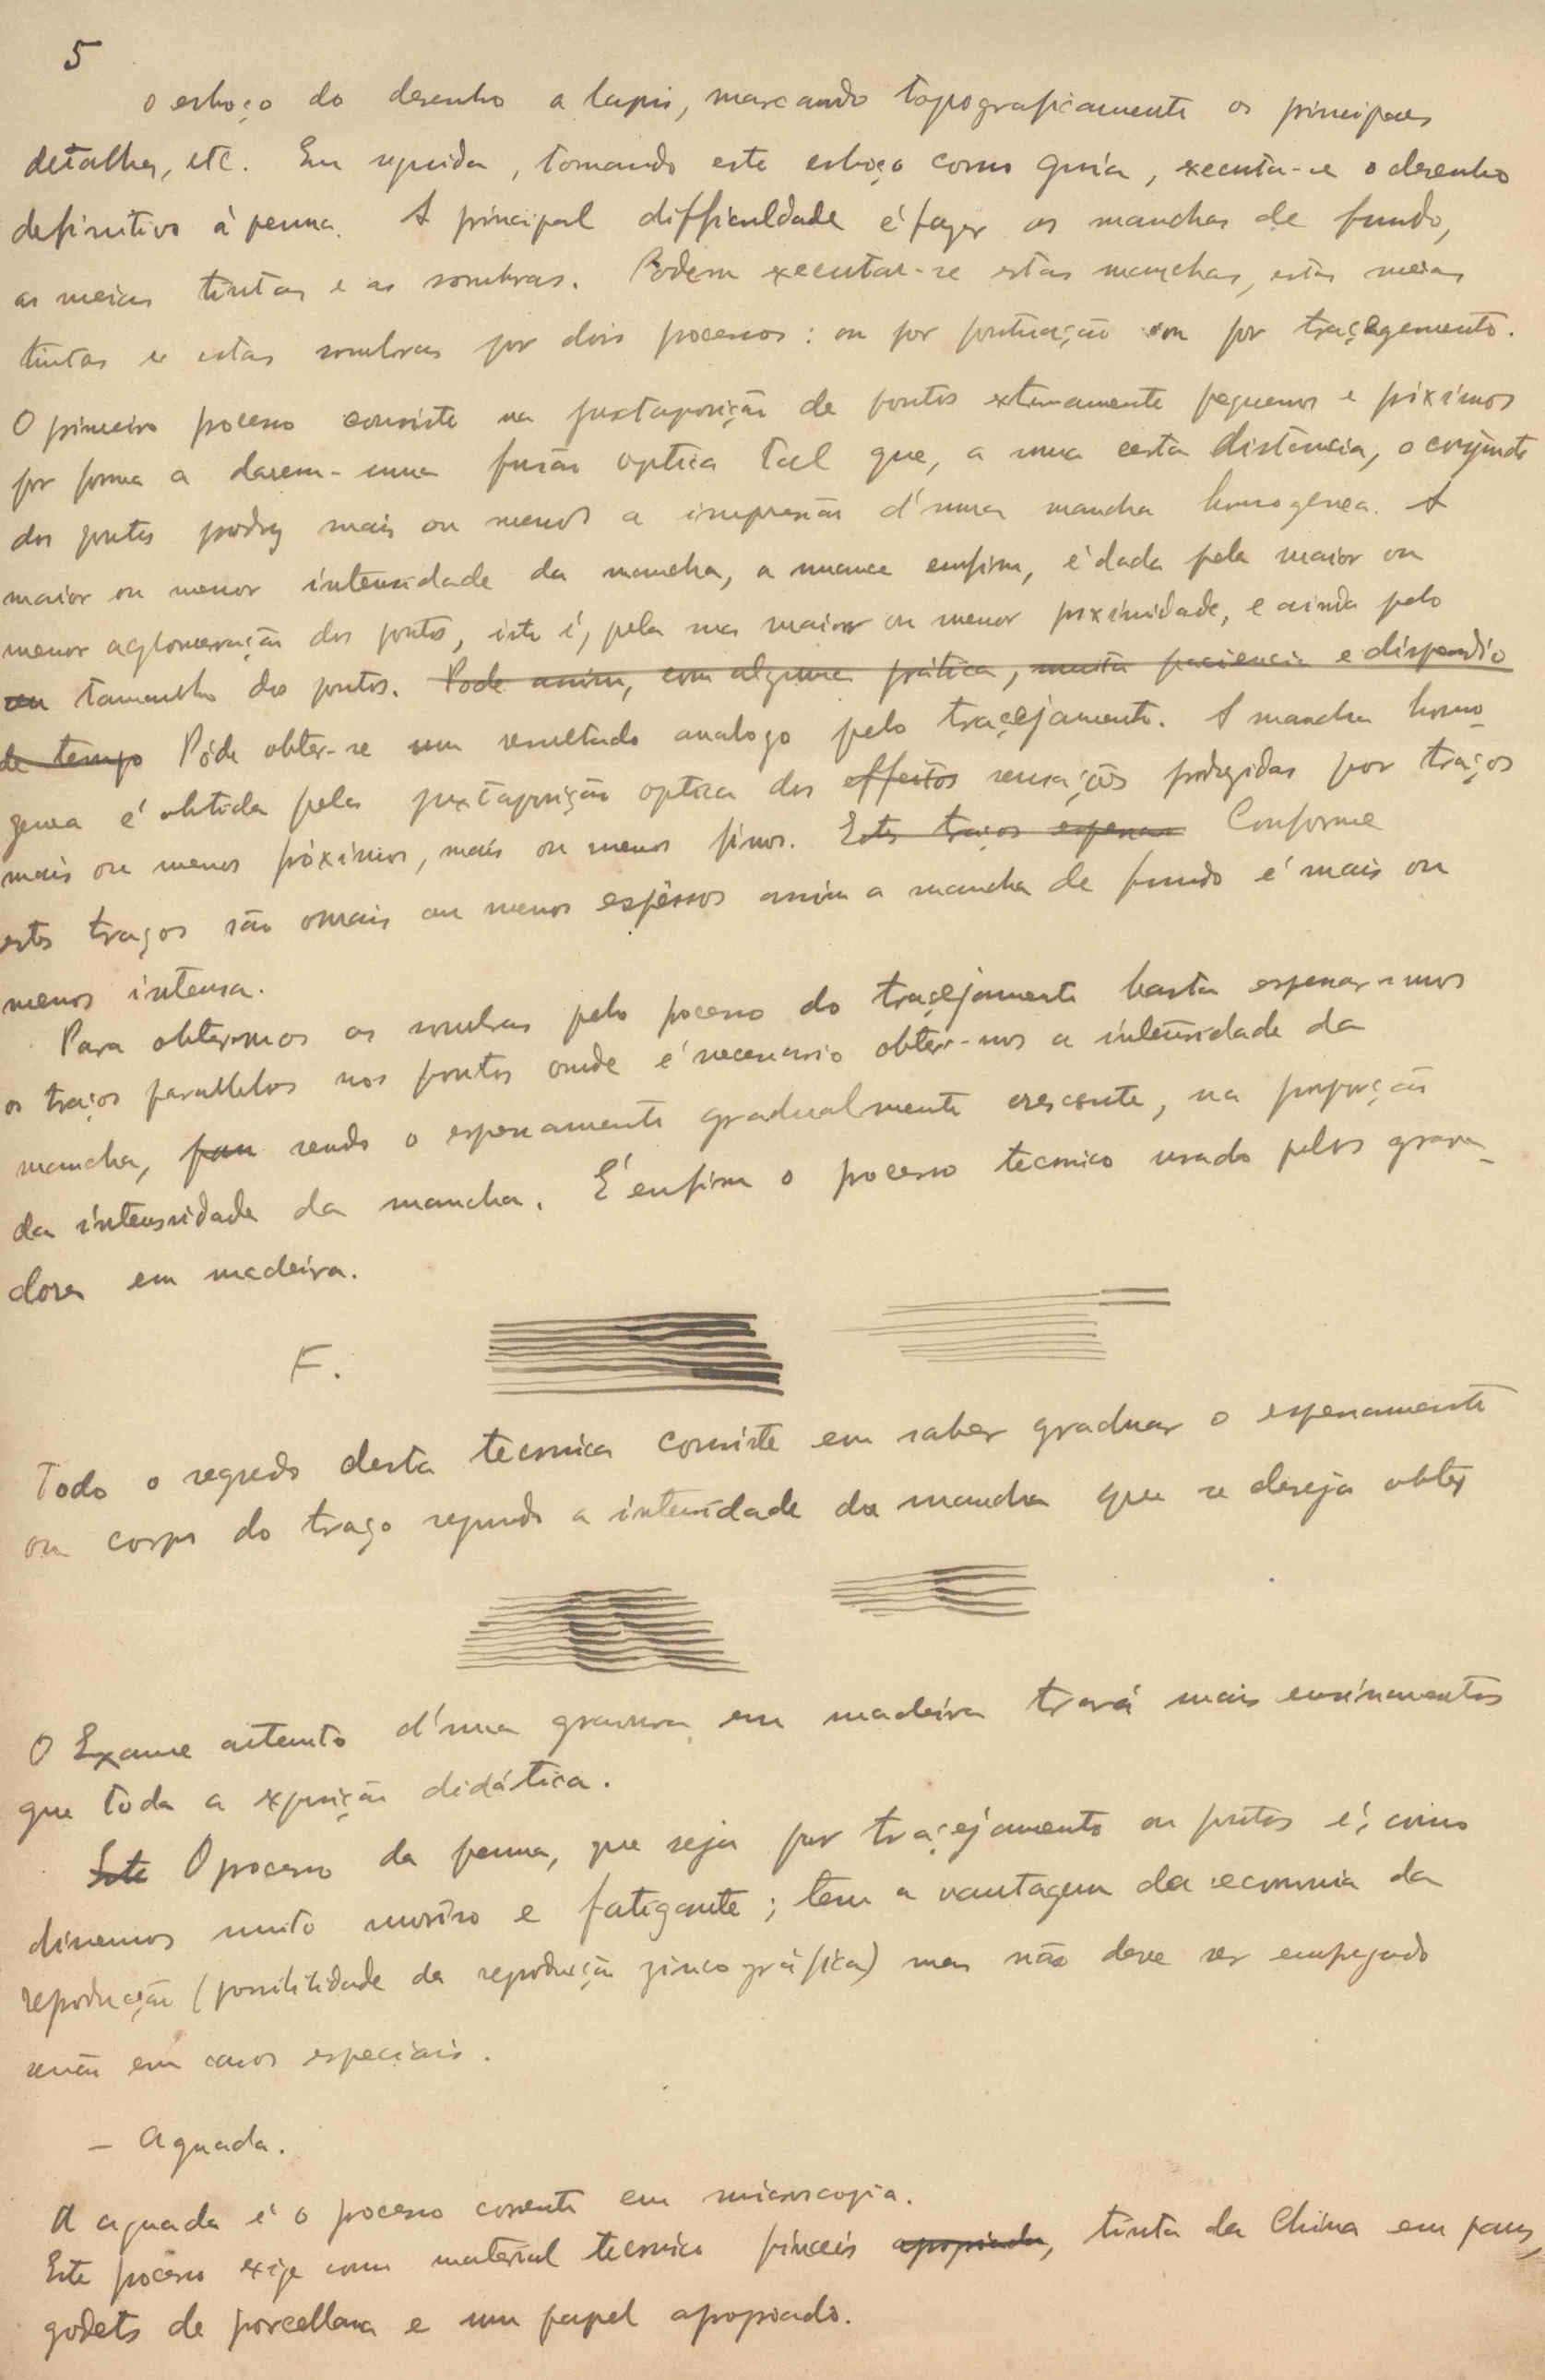 5
o esboço do desenho a lapis, marcando topograficamente os principaes
detalhes, etc. Em seguida, tomando este esboço como guia, executa-se o desenho
definitivo á penna. A principal difficuldade é fazer as manchas de fundo,
as meias tintas e as sombras. Podem executar-se estas manchas, estas meias
tintas e estas sombras por dois processos: ou por pontuação ou por tracejamento.
O primeiro processo consiste na juxtaposição de pontos extremamente pequenos e próximos
por forma a darem-uma fusão optica tal que, a uma certa distancia, o conjuncto
dos pontos produz mais ou menos a impressão d'uma mancha homogenea. A
maior ou menor intensidade da mancha, a nuance emfim, é dada pela maior ou
menor agglomeração dos pontos, isto é, pela sua maior ou menor proximidade, e ainda pelo
tamanho dos pontos. Pode assim, com alguma prática, muita paciencia e dispendio
de tempo Póde obter-se um resultado analogo pelo tracejamento. A mancha homo-
genea é obtida pela juxtaposição optica dos effeitos sensações produzidas por traços
mais ou menos próximos, mais ou menos finos. Estes traços espessar Conforme
estes traços são mais ou menos espêssos assim a mancha de fundo é mais ou
menos intensa.
Para obtermos as sombras pelo processo do tracejamento basta espessar-mos
os traços parallelos nos pontos onde é necessario obter-mos a intensidade da
mancha, sendo o espessamento gradualmente crescente, na proporção
da intensidade da mancha. É emfim o processo tecnico usado pelos grava-
dores em madeira.
F.
Todo o segredo desta tecnica consiste em saber graduar o espessamento
ou corpo do traço segundo a intensidade da mancha que se deseja obter
O Exame attento d'uma gravura em madeira trará mais ensinamentos
que toda a exposição didática.
Este O processo da penna, que seja por tracejamento ou pontos é, como
dissemos muito moroso e fatigante; tem a vantagem da economia da
reprodução (possibilidade da reprodução zincográfica) mas não deve ser empregado
senão em casos especiais.
- Aguada.
A aguada é o processo corrente em microscopia.
Este processo exige como material tecnico pinceis apropriados, tinta da China em paus,
godets de porcellana e um papel apropriado.